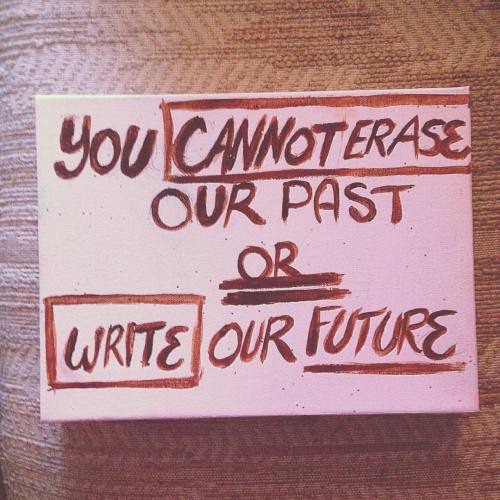 YOU CANNOT ERASE
OUR PAST
OR
WRITE OUR FUTURE